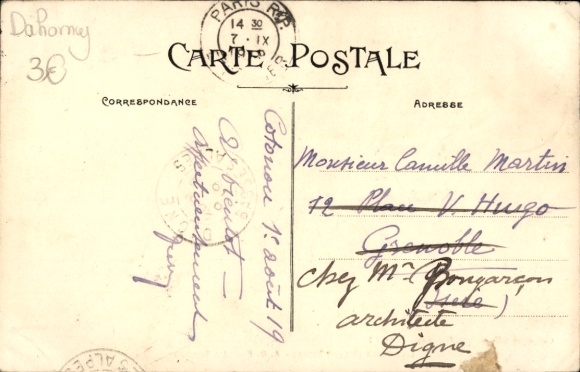 Dahomey
3€
PARIS R.P.
14 30
7 · IX
CARTE POSTALE
CORRESPONDANCE
ADRESSE
Cotonou 1er août 19
A bientôt —
Affectueusement
Monsieur Camille Martin
12 Place V. Hugo
Grenoble
(Isère)
Chez Mr Bongarçon
architecte
Digne
ALPES